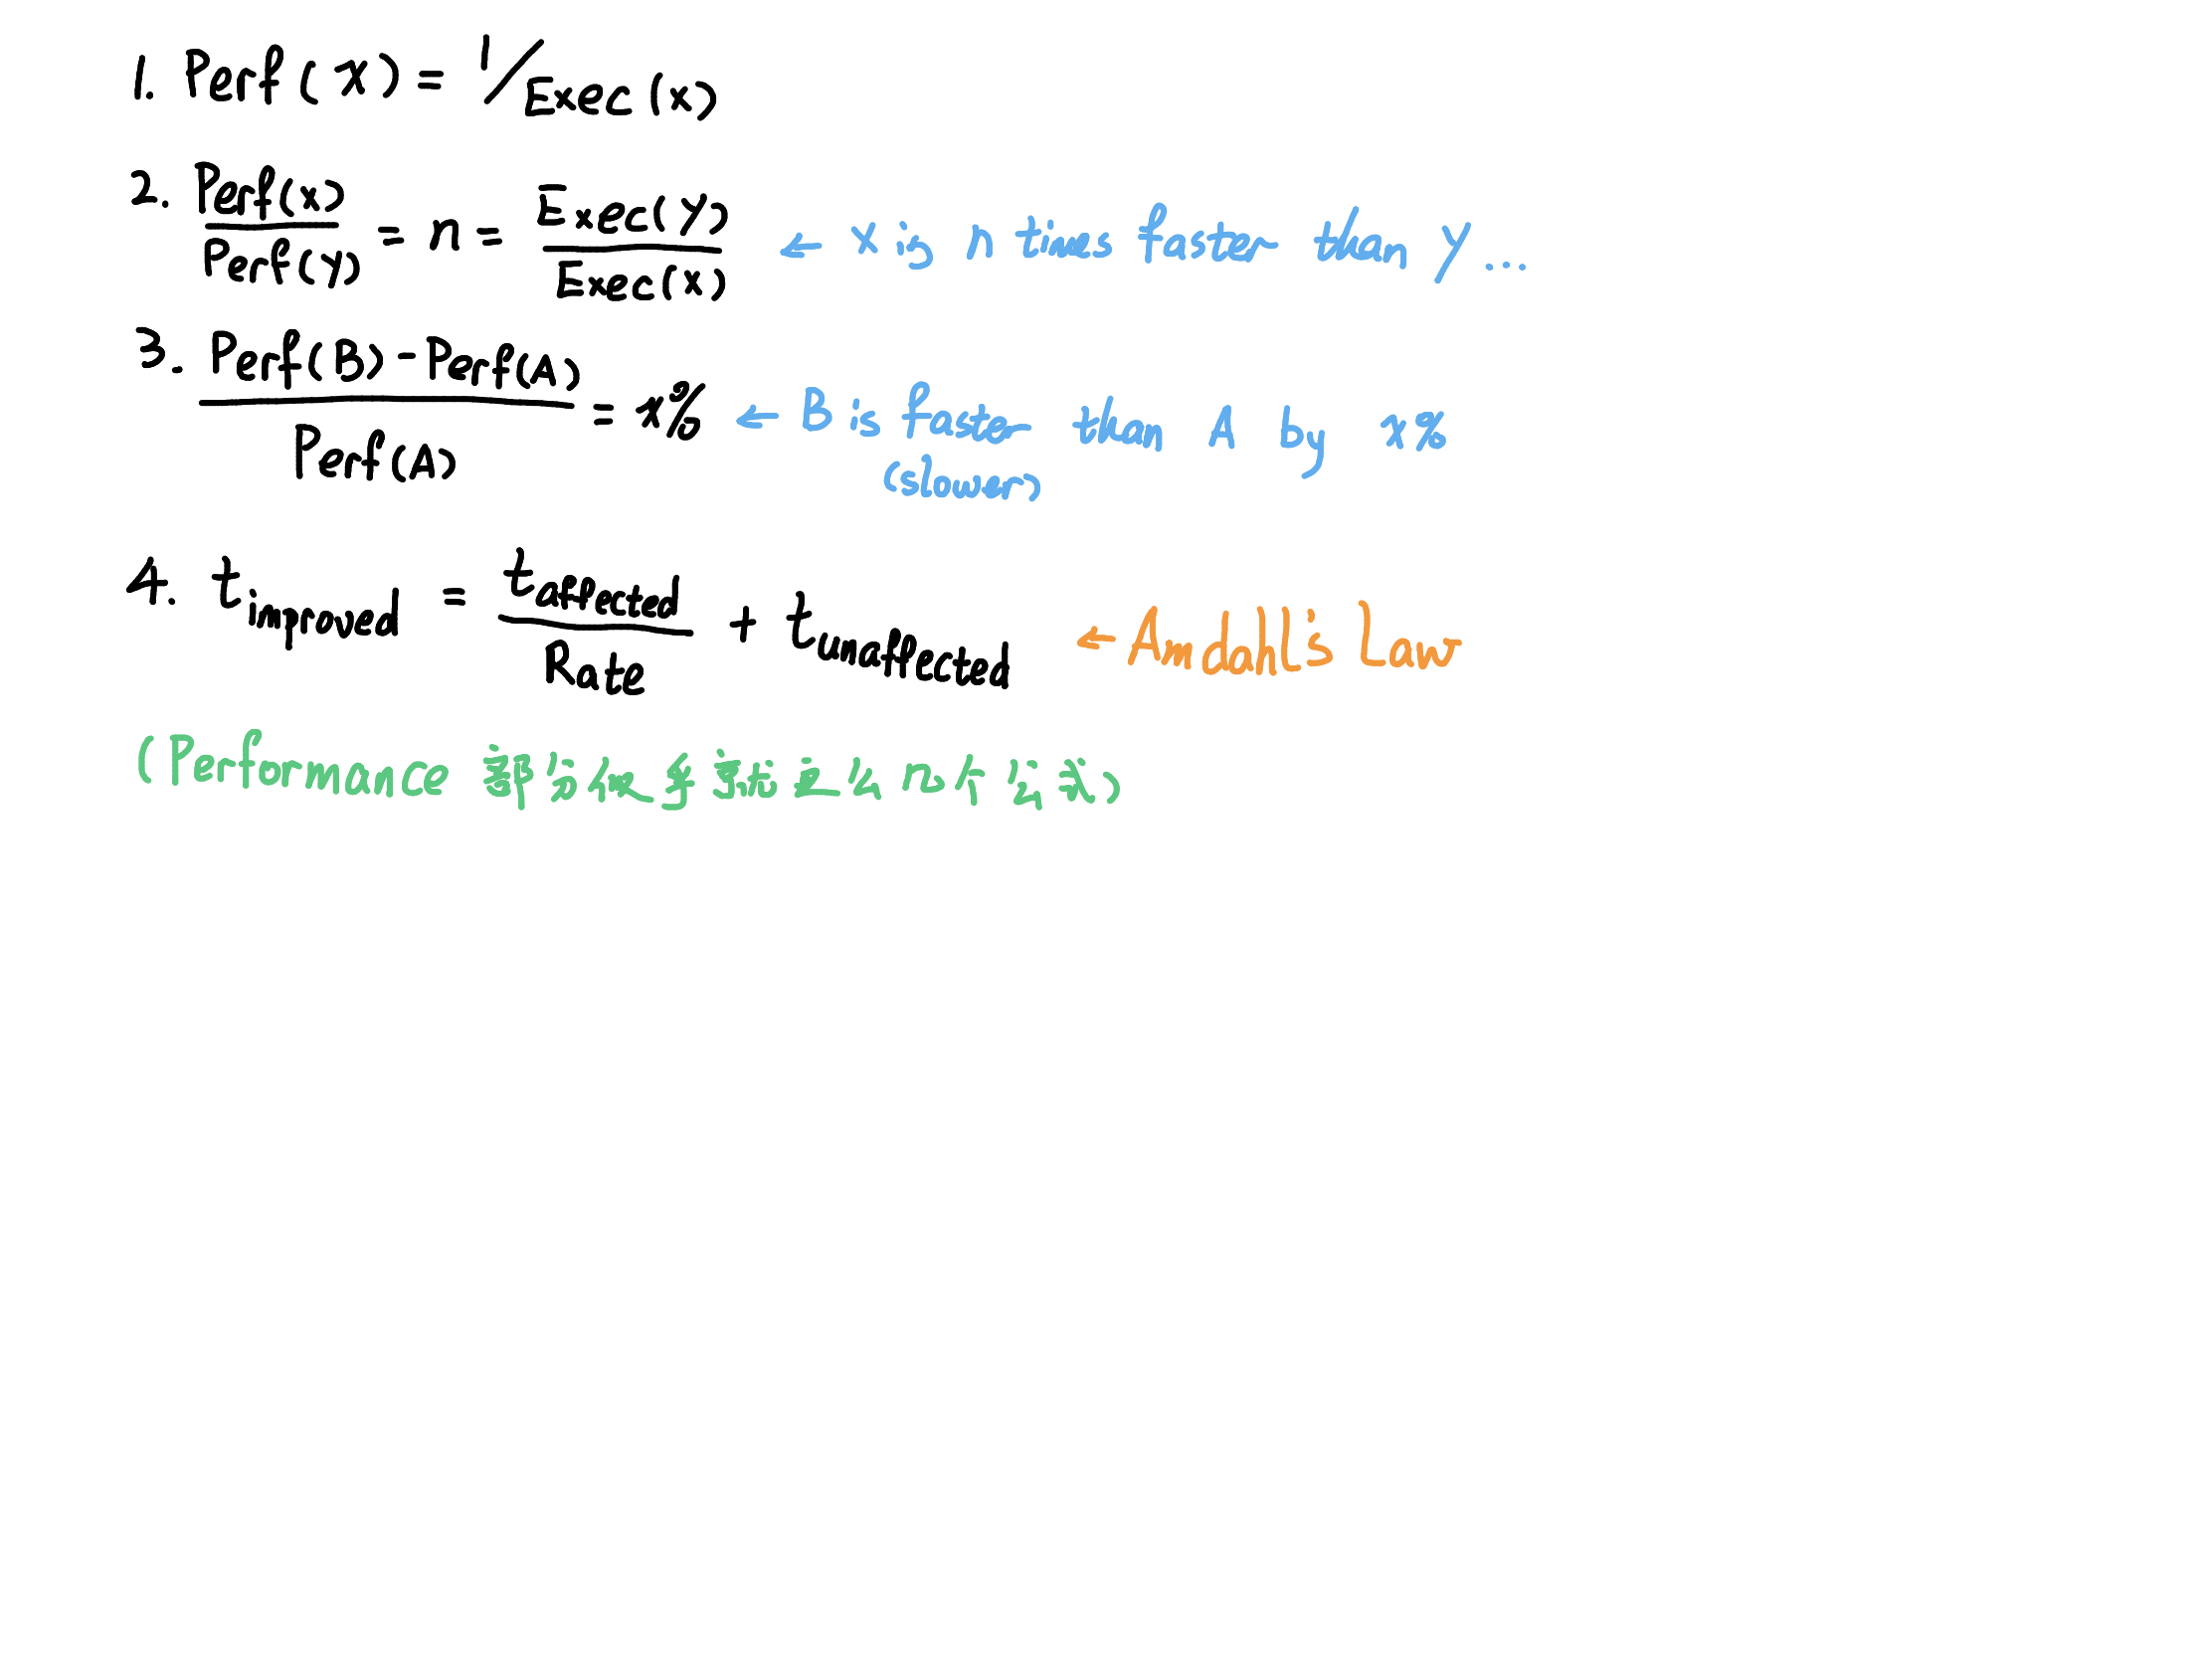 1. Perf(x) = 1/Exec(x)
2. Perf(x)/Perf(y) = n = Exec(y)/Exec(x) ← x is n times faster than y...
3. Perf(B)-Perf(A)/Perf(A) = x% ← B is faster than A by x%
(slower)
4. t improved = t affected/Rate + t unaffected ← Amdahl's Law
(Performance 部分 就 这么 几个公式)